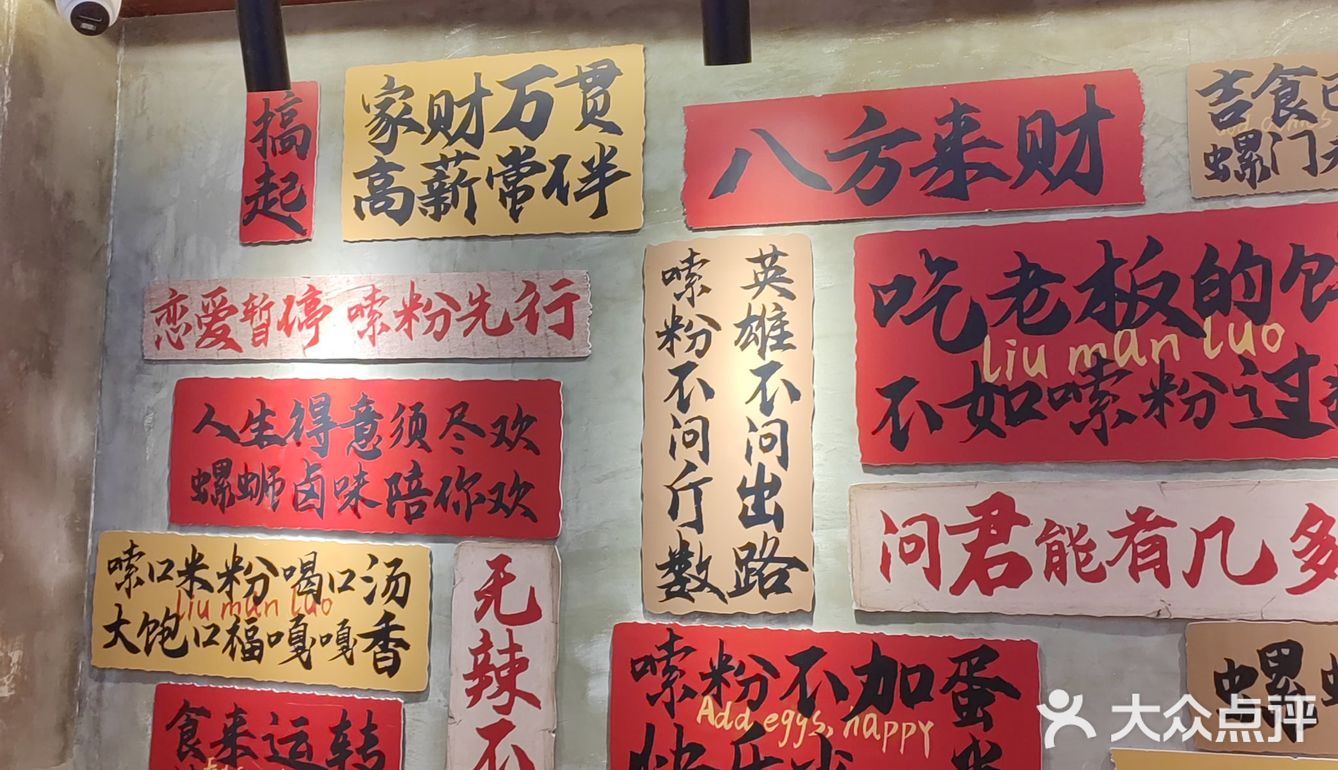 搞起
家财万贯
高薪常伴
八方来财
吉食
螺门
恋爱暂停 嗦粉先行
英雄不问出路
嗦粉不问斤数
吃老板的
liu man luo
不如嗦粉过
人生得意须尽欢
螺蛳卤味陪你欢
问君能有几多
嗦口米粉喝口汤
liu man luo
大饱口福嘎嘎香
无辣不
嗦粉不加蛋
Add eggs, happy
食来运转
螺
大众点评